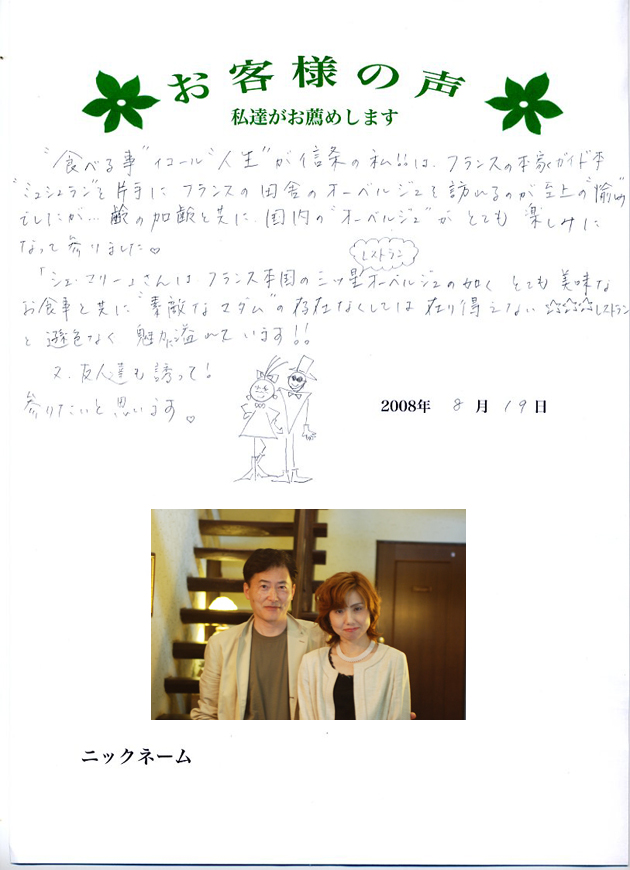 お客様の声
私達がお薦めします
"食べる事"イコール"人生"が信条の私!!は、フランスの本家ガイド本
"ミシュラン"を片手にフランスの田舎のオーベルジュを訪れるのが至上の"愉しみ"
でしたが…齢の加齢と共に、国内の"オーベルジュ"がとても楽しみに
なって参りました♡
レストラン
「シェ・マリー」さんは、フランス本国の三ッ星オーベルジュの如く とても美味な
お食事と共に"素敵なマダム"の存在なくしては在り得えない ☆☆☆☆レストラン
と遜色なく魅力に溢れています!!
又、友人達も誘って!
参りたいと思います。♡
2008年 8月 19日
ニックネーム